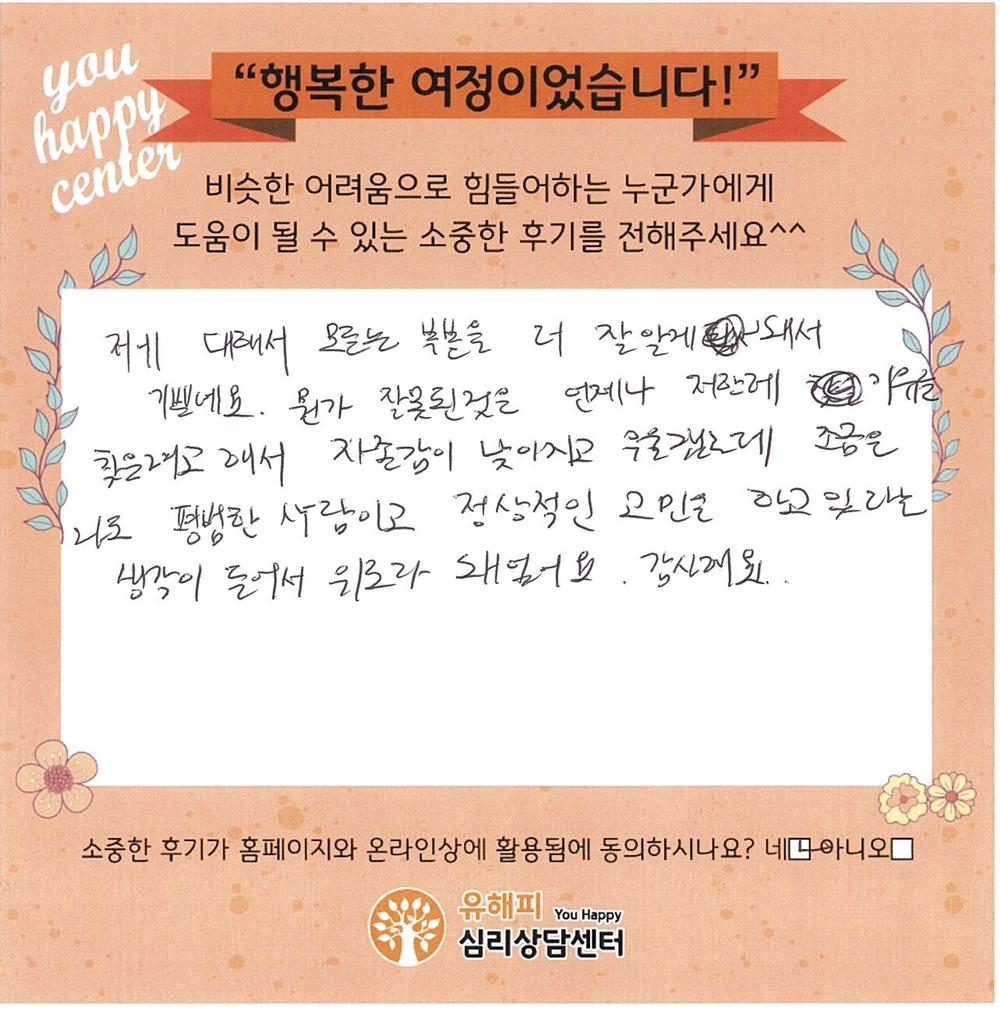 you
happy
center
“행복한 여정이었습니다!”
비슷한 어려움으로 힘들어하는 누군가에게
도움이 될 수 있는 소중한 후기를 전해주세요^^
저에 대해서 모르는 부분을 더 잘 알게 돼서
기쁘네요. 뭔가 잘못된것은 언제나 저한테 이유를
찾을려고 해서 자존감이 낮아지고 우울했는데 조금은
나도 평범한 사람이고 정상적인 고민을 하고 있다는
생각이 들어서 위로가 돼었어요. 감사해요..
소중한 후기가 홈페이지와 온라인상에 활용됨에 동의하시나요? 네 아니오
유해피 You Happy
심리상담센터